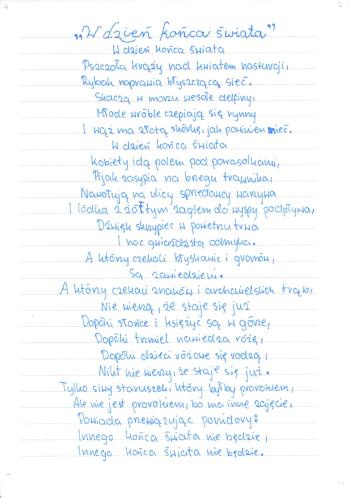 "W dzień końca świata"
W dzień końca świata
Pszczoła krąży nad kwiatem nasturcji,
Rybak naprawia błyszczącą sieć.
Skaczą w morzu wesołe delfiny,
Młode wróble czepiają się rynny
I wąż ma złotą skórę, jak powinien mieć.
W dzień końca świata
Kobiety idą polem pod parasolkami,
Pijak zasypia na brzegu trawnika,
Nawołują na ulicy sprzedawcy warzywa
I łódka z żółtym żaglem do wyspy podpływa,
Dźwięk skrzypiec w powietrzu trwa
I noc gwiaździstą odmyka.
A którzy czekali błyskawic i gromów,
Są zawiedzeni.
A którzy czekali znaków i archanielskich trąb,
Nie wierzą, że staje się już
Dopóki słońce i księżyc są w górze,
Dopóki trzmiel nawiedza różę,
Dopóki dzieci różowe się rodzą,
Nikt nie wierzy, że staje się już.
Tylko siwy staruszek, który byłby prorokiem,
Ale nie jest prorokiem, bo ma inne zajęcie,
Powiada przewiązując pomidory:
Innego końca świata nie będzie,
Innego końca świata nie będzie.